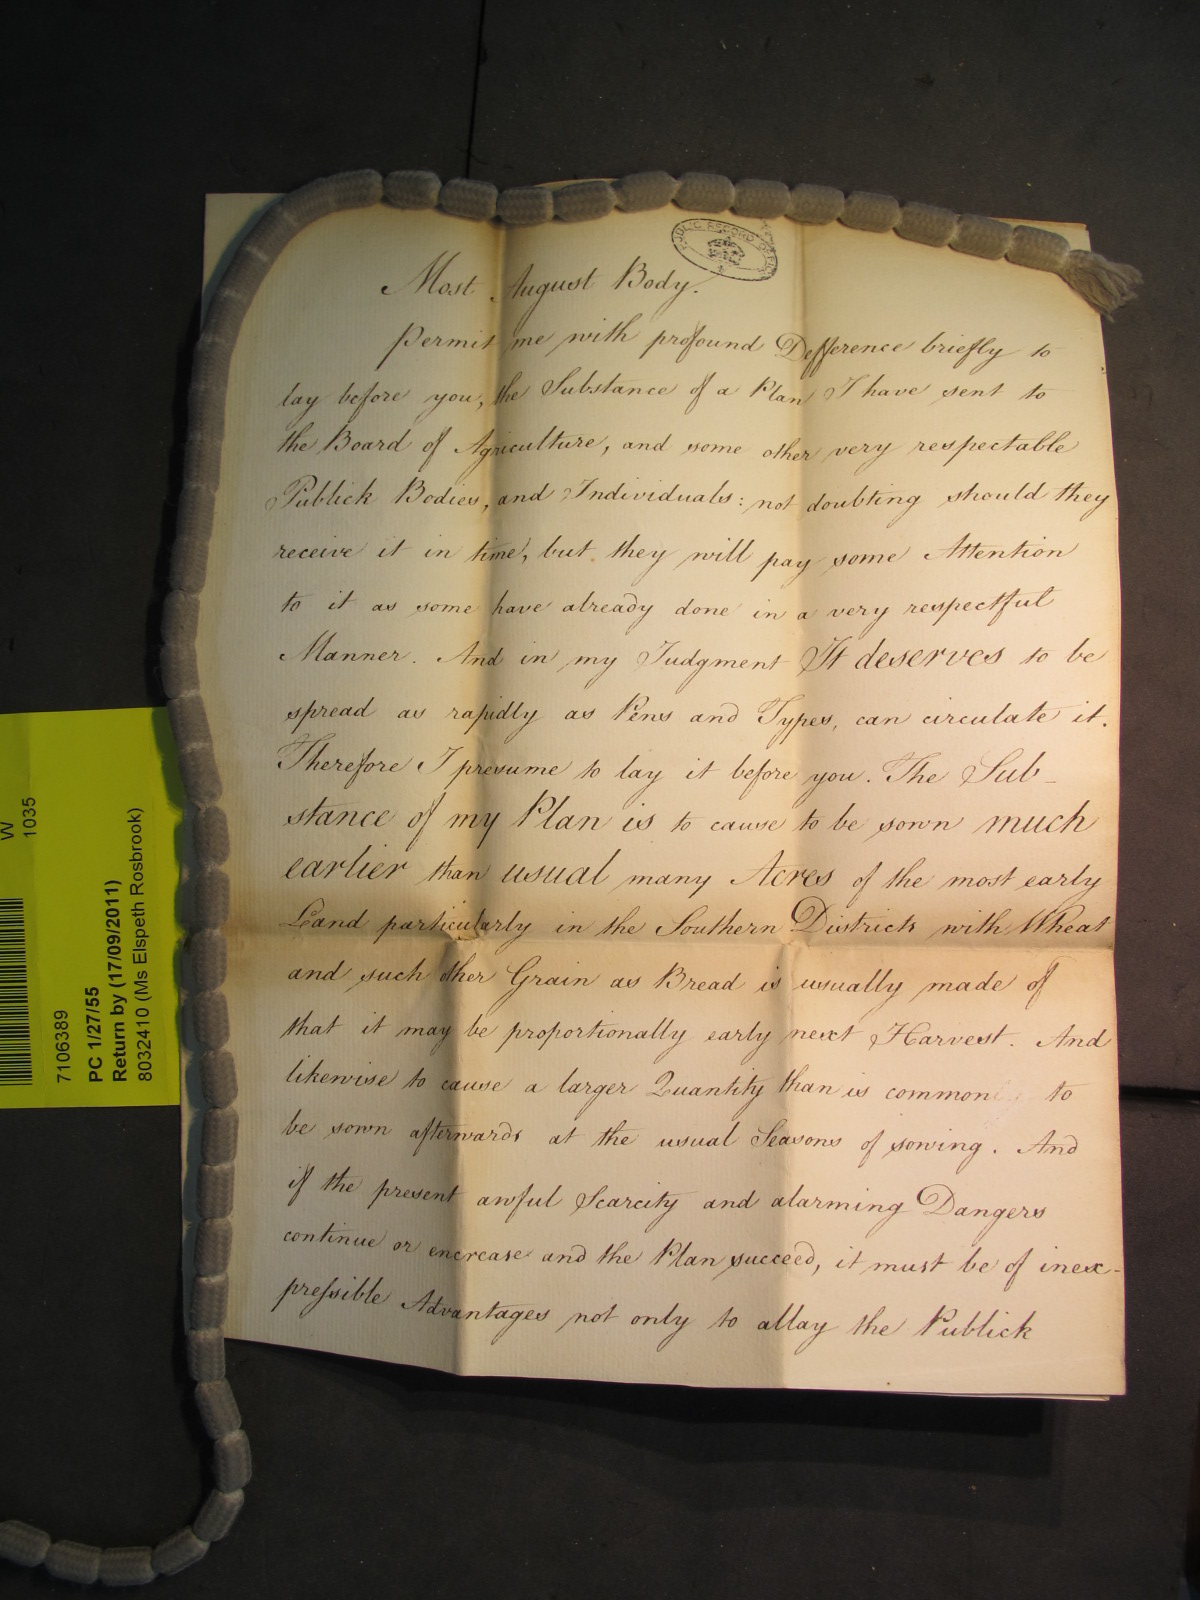 PUBLIC RECORD OFFICE
Most August Body.
Permit me with profound Defference briefly to
lay before you, the Substance of a Plan I have sent to
the Board of Agriculture, and some other very respectable
Publick Bodies, and Individuals: not doubting should they
receive it in time, but they will pay some Attention
to it as some have already done in a very respectful
Manner. And in my Judgment It deserves to be
spread as rapidly as Pens and Types, can circulate it.
Therefore I presume to lay it before you. The Sub-
stance of my Plan is to cause to be sown much
earlier than usual many Acres of the most early
Land particularly in the Southern Districts with Wheat
and such other Grain as Bread is usually made of
that it may be proportionally early next Harvest. And
likewise to cause a larger Quantity than is common to
be sown afterwards at the usual Seasons of sowing. And
if the present awful Scarcity and alarming Dangers
continue or encrease and the Plan succeed, it must be of inex-
pressible Advantages not only to allay the Publick
W
1035
7106389
PC 1/27/55
Return by (17/09/2011)
8032410 (Ms Elspeth Rosbrook)